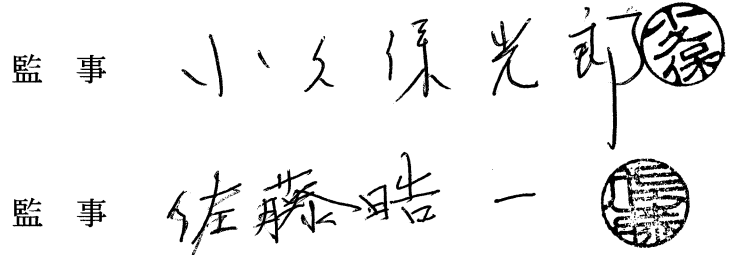 監事 小久保光郎 小久保
監事 佐藤晧一